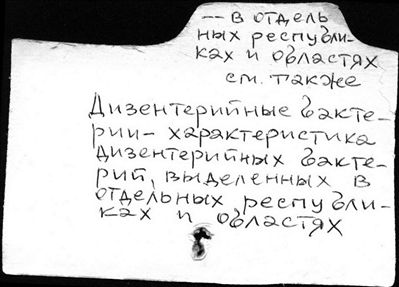 -- в отдель
ных республи-
ках и областях
см. также
Дизентерийные бакте-
рии - характеристика
дизентерийных бакте-
рий, выделенных в
отдельных республи-
ках и областях